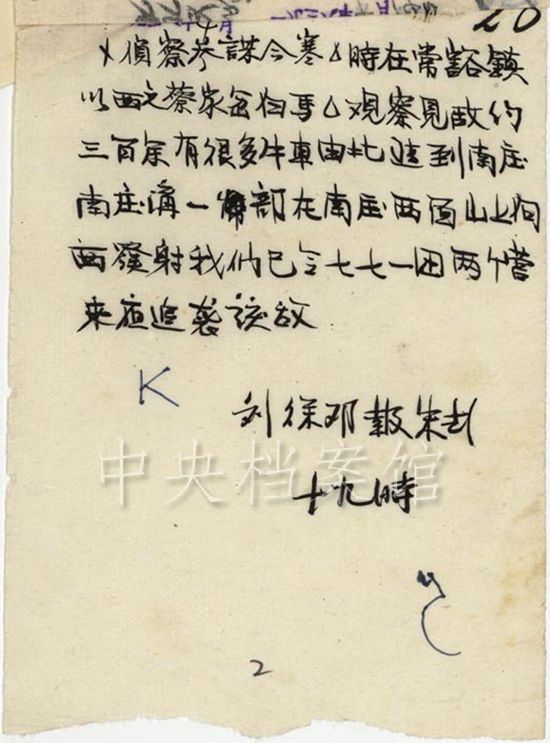 20
偵察參謀今寒 時在常峪鎮
以西之蔡家 馬 观察見敌約
三百余有很多牛車由北進到南庄
南庄溝一部在南庄西面山上向
西發射我們已令七七一团两个营
来夜追袭该敌
K
刘徐邓報朱彭
十九時
中央档案馆
2